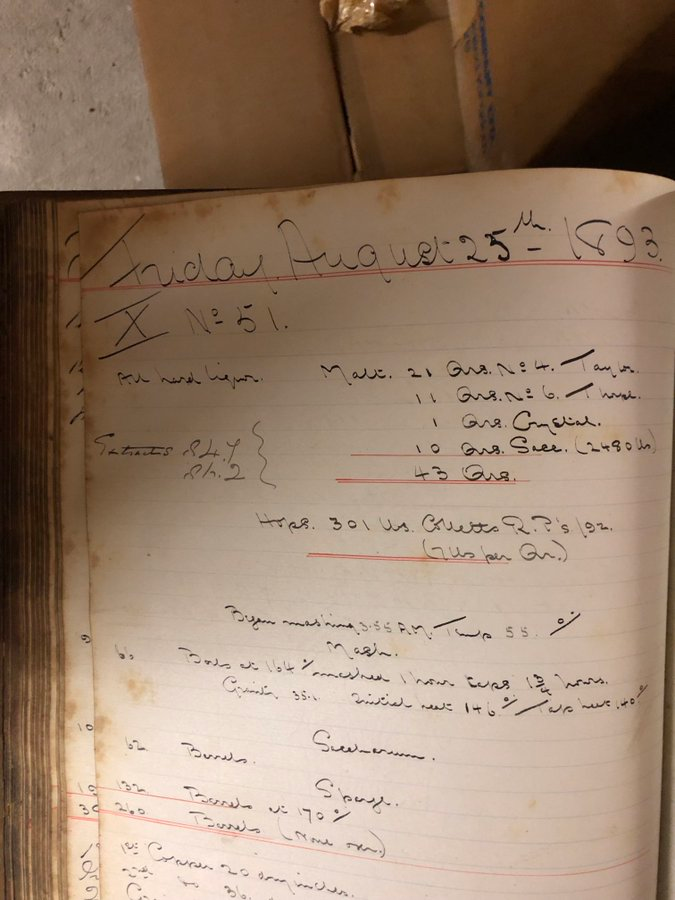 Friday August 25th 1893.
X No 51.
All hard liquor. Malt. 21 Qrs. No 4. Taylor.
11 Qrs. No 6.
1 Qrs. Crystal.
Extracts 84.7 10 Qrs. Sacc. (2480 lbs)
86.2 43 Qrs.
Hops. 301 lbs. Colletts R.P's /92.
(7 lbs per Qr.)
Began mashing 3.55 A.M. Temp 55.°
Mash.
9
66 Barls at 164° mashed 1 hour taps 1 3/4 hours.
Gravity 35.1. Initial heat 146.° Tap heat 140°
10
Saccharum.
62 Barrels.
Sparge.
132 Barrels at 170°
260 Barrels
1st Copper 20 dry inches.
2nd do 36